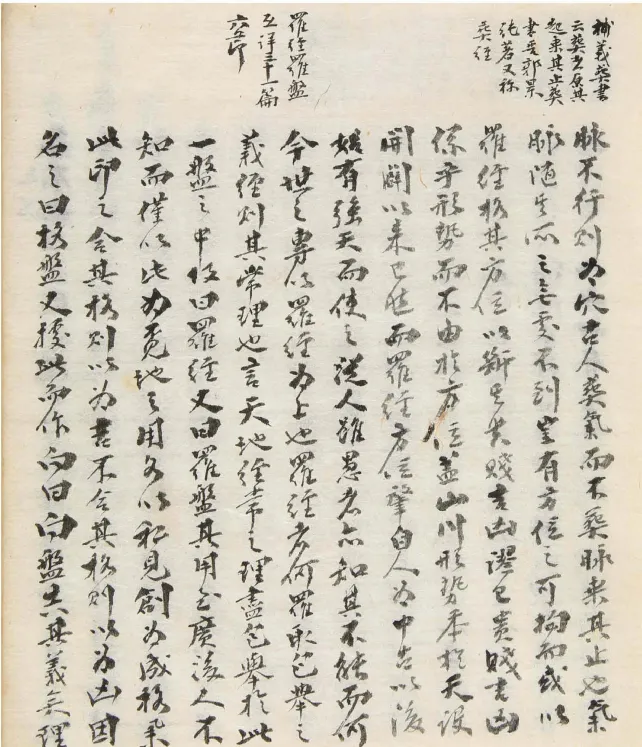 補義葬書
云葬者原其
起乘其止葬
書晋郭景
純著又称
葬経
羅経羅盤
互詳三十一篇
脉不行則為穴古人葬氣而不葬脉乘其止也氣
脉随生而之無處不到豈有方位之可拘而或以
羅経格其方位以斷貴賤吉凶謬已貴賤吉凶
係乎形勢而不由於方位蓋山川形勢本於天設
開闢以来已然而羅経方位肇自人為中古以後
始有強天而使之從人雖愚者亦知其不能而何
今世之專以羅経為上也羅経者何羅取包舉之
義経則其常理也言天地経常之理盡包舉於此
一盤之中曰羅経又曰羅盤其用至廣後人不
知而僅以此為覓地之用各以私見創為成格
此印之合其格則以為吉不合其格則以為凶因
名之曰格盤又據此而作向曰向盤失其義矣理